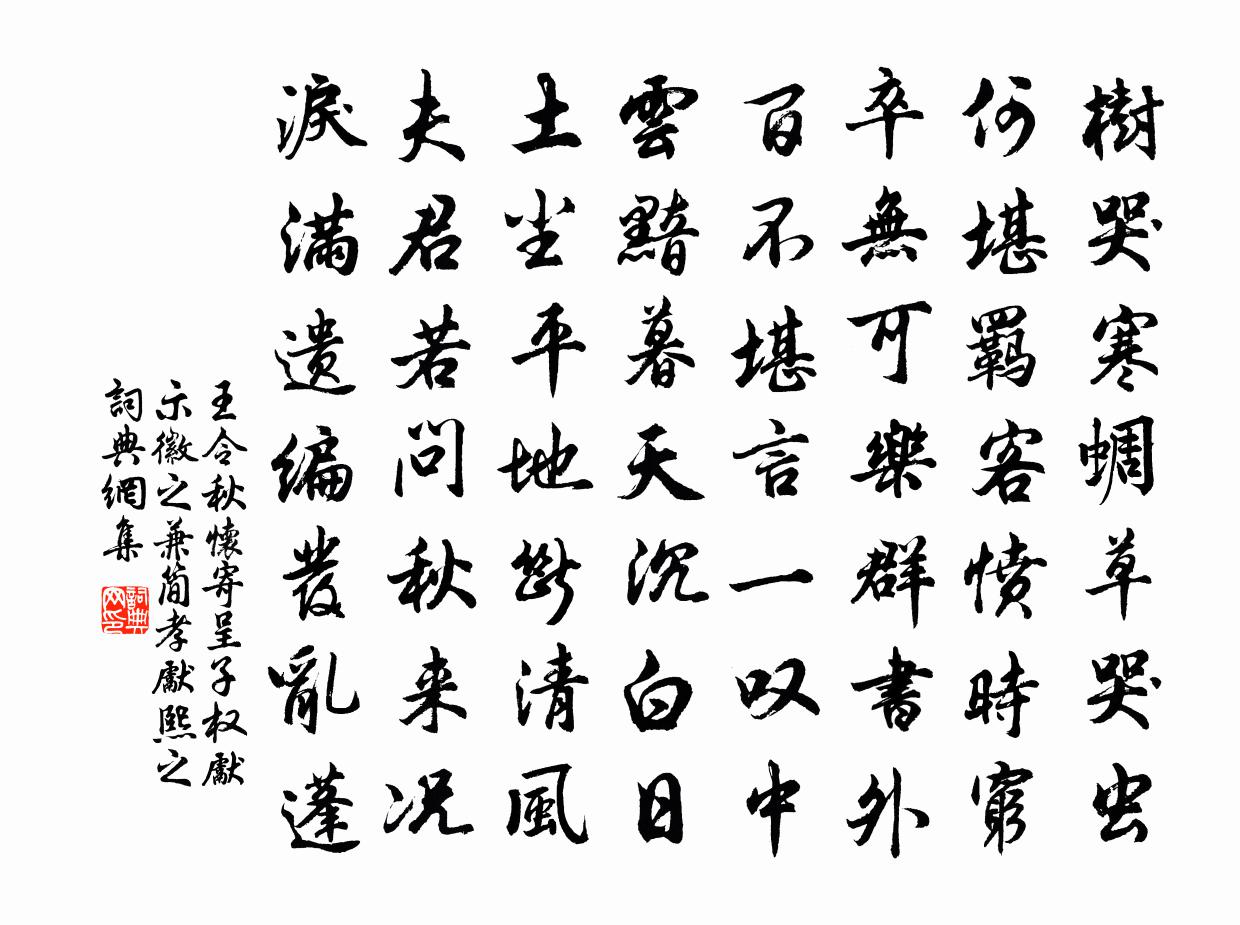 樹哭寒蜩草哭虫
何堪羁客愤時窮
卒無可樂群書外
百不堪言一叹中
雲黯暮天沉白日
土坌平地斷清風
夫君若问秋来况
淚滿遗编髮亂蓬
王令秋懷寄呈子权獻
示徽之兼简孝獻熙之
詞典網集
詞典网印